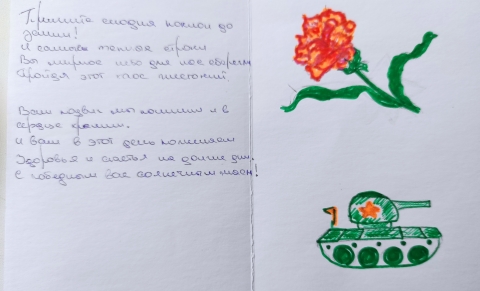 Примите сегодня поклон до
земли!
И самые теплые строки
Вы мирное небо для нас сберегли
Пройдя этот тяжелый.

Ваш подвиг мы помним и в
сердце храним.
И Вам в этот день пожелаем
Здоровья и счастья на долгие дни.
С победным вас солнечным маем!